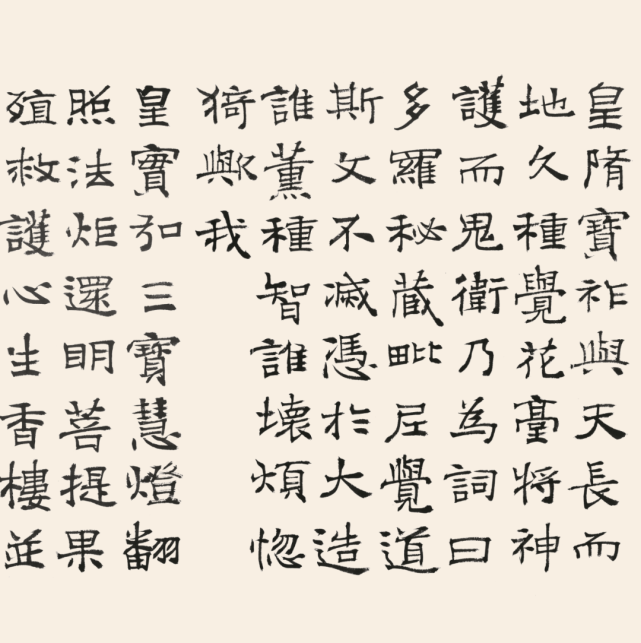 皇隋寶祚與天長而
地久種覺花臺將神
護而鬼衛乃為詞曰
多羅秘藏毗尼覺道
斯文不滅憑於大造
誰薰種智誰壞煩惚
猗歟我
皇實弘三寶慧燈翻
照法炬還明菩提果
殖救護心生香樓並